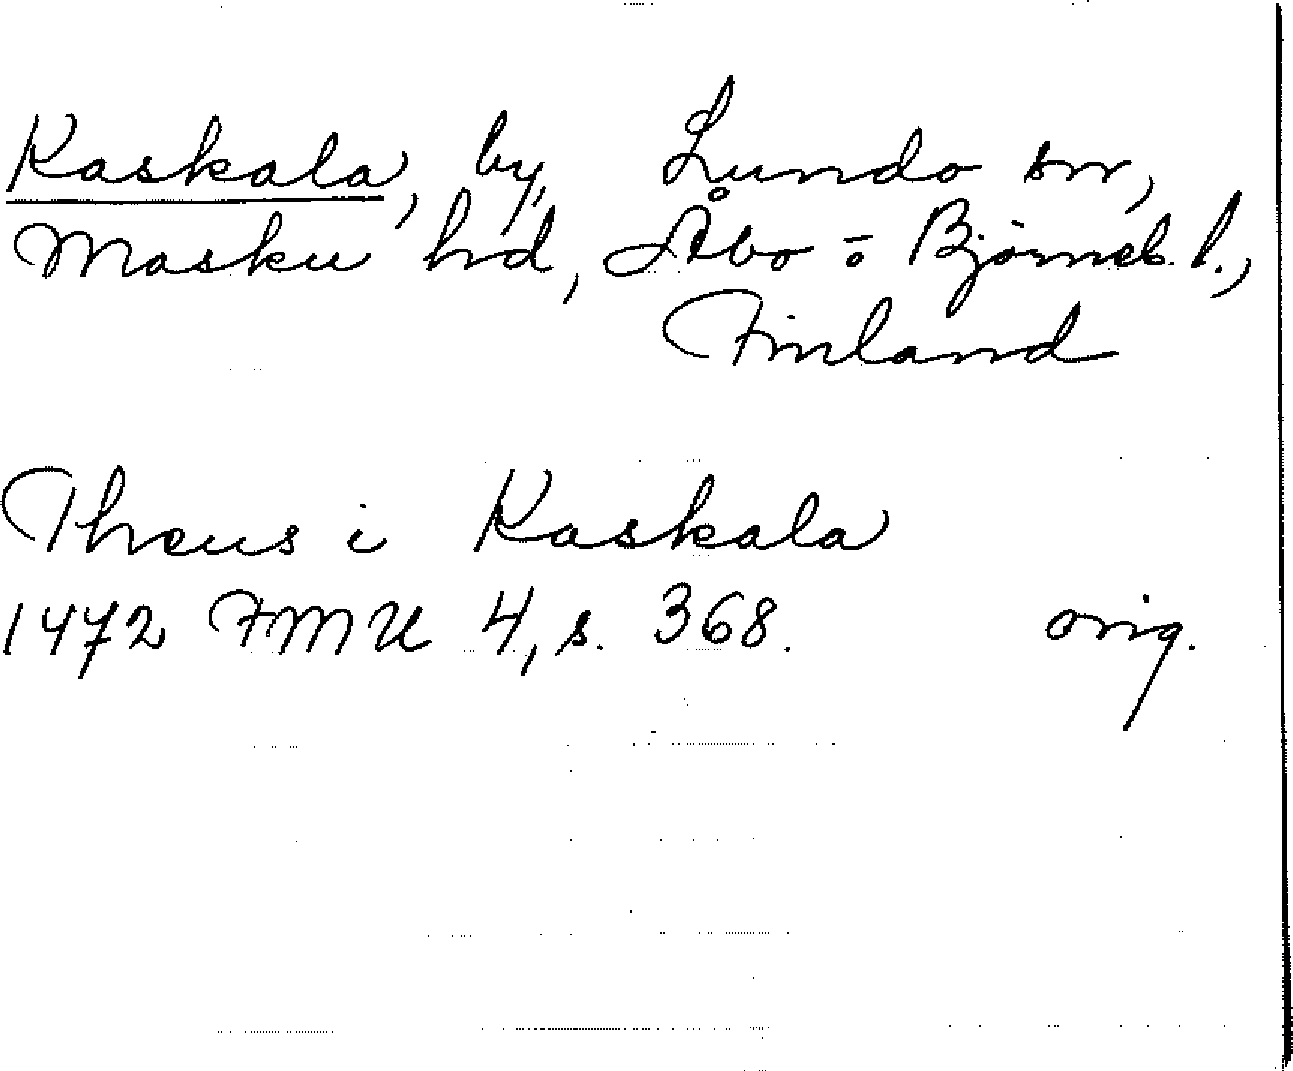 Kaskala, by, Lundo sn,
Masku hd, Åbo- o Björneb. l.,
Finland
Threus i Kaskala
1472 FMU 4, s. 368. orig.